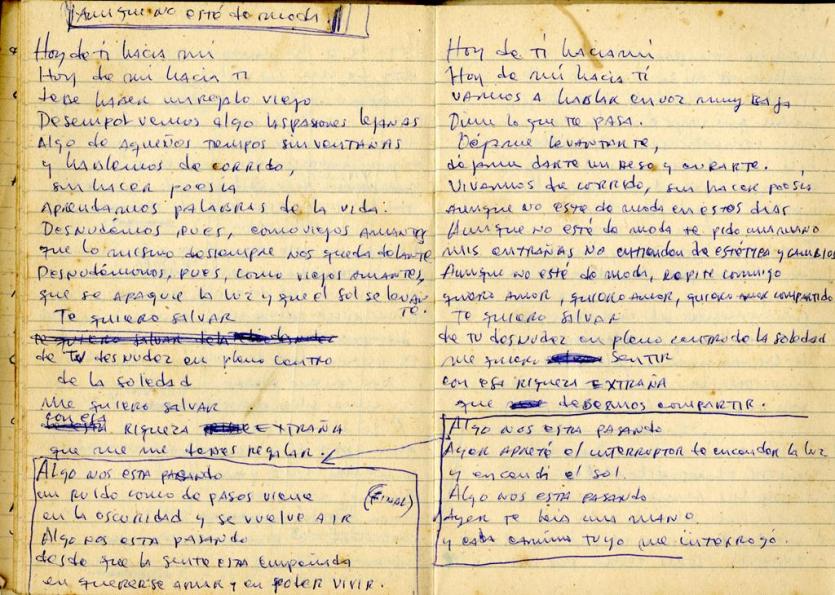 Aunque no está de moda.
Hoy de ti hacia mí
Hoy de mí hacia ti
debe haber un regalo viejo
Desempolvemos algo las pasiones lejanas
Algo de aquellos tiempos sin ventanas
y hablemos de corrido,
sin hacer poesía
Aprendamos palabras de la vida.
Desnudémonos pues, como viejos amantes
que lo mismo de siempre nos queda delante
Desnudémonos, pues, como viejos amantes,
que se apague la luz y que el sol se levante.
Te quiero salvar
de tu desnudez en pleno centro
de la soledad
me quiero salvar
con esa riqueza extraña
que me tenés regular.
Algo nos esta pasando
un ruido como de pasos viene
en la oscuridad y se vuelve a ir
(FINAL)
Algo nos esta pasando
desde que la gente esta empeñada
en quererse amar y en poder vivir.
Hoy de ti hacia mí
Hoy de mí hacia ti
vamos a hablar en voz muy baja
Dime lo que te pasa.
Déjame levantarte,
déjame darte un beso y curarte.
Vivamos de corrido, sin hacer poesía
aunque no esté de moda en estos días.
Aunque no esté de moda te pido una mano
mis entrañas no entienden de estética y cambios
Aunque no esté de moda, repite conmigo
quiero amor, quiero amor, quiero compartido
Te quiero salvar
de tu desnudez en pleno centro de la soledad
me quiero sentir
con esa riqueza extraña
que debemos compartir.
Algo nos esta pasando
Ayer apreté el interruptor de encender la luz
y encendí el sol.
Algo nos esta pasando
Ayer te leía una mano
y cada camino tuyo me interrogó.